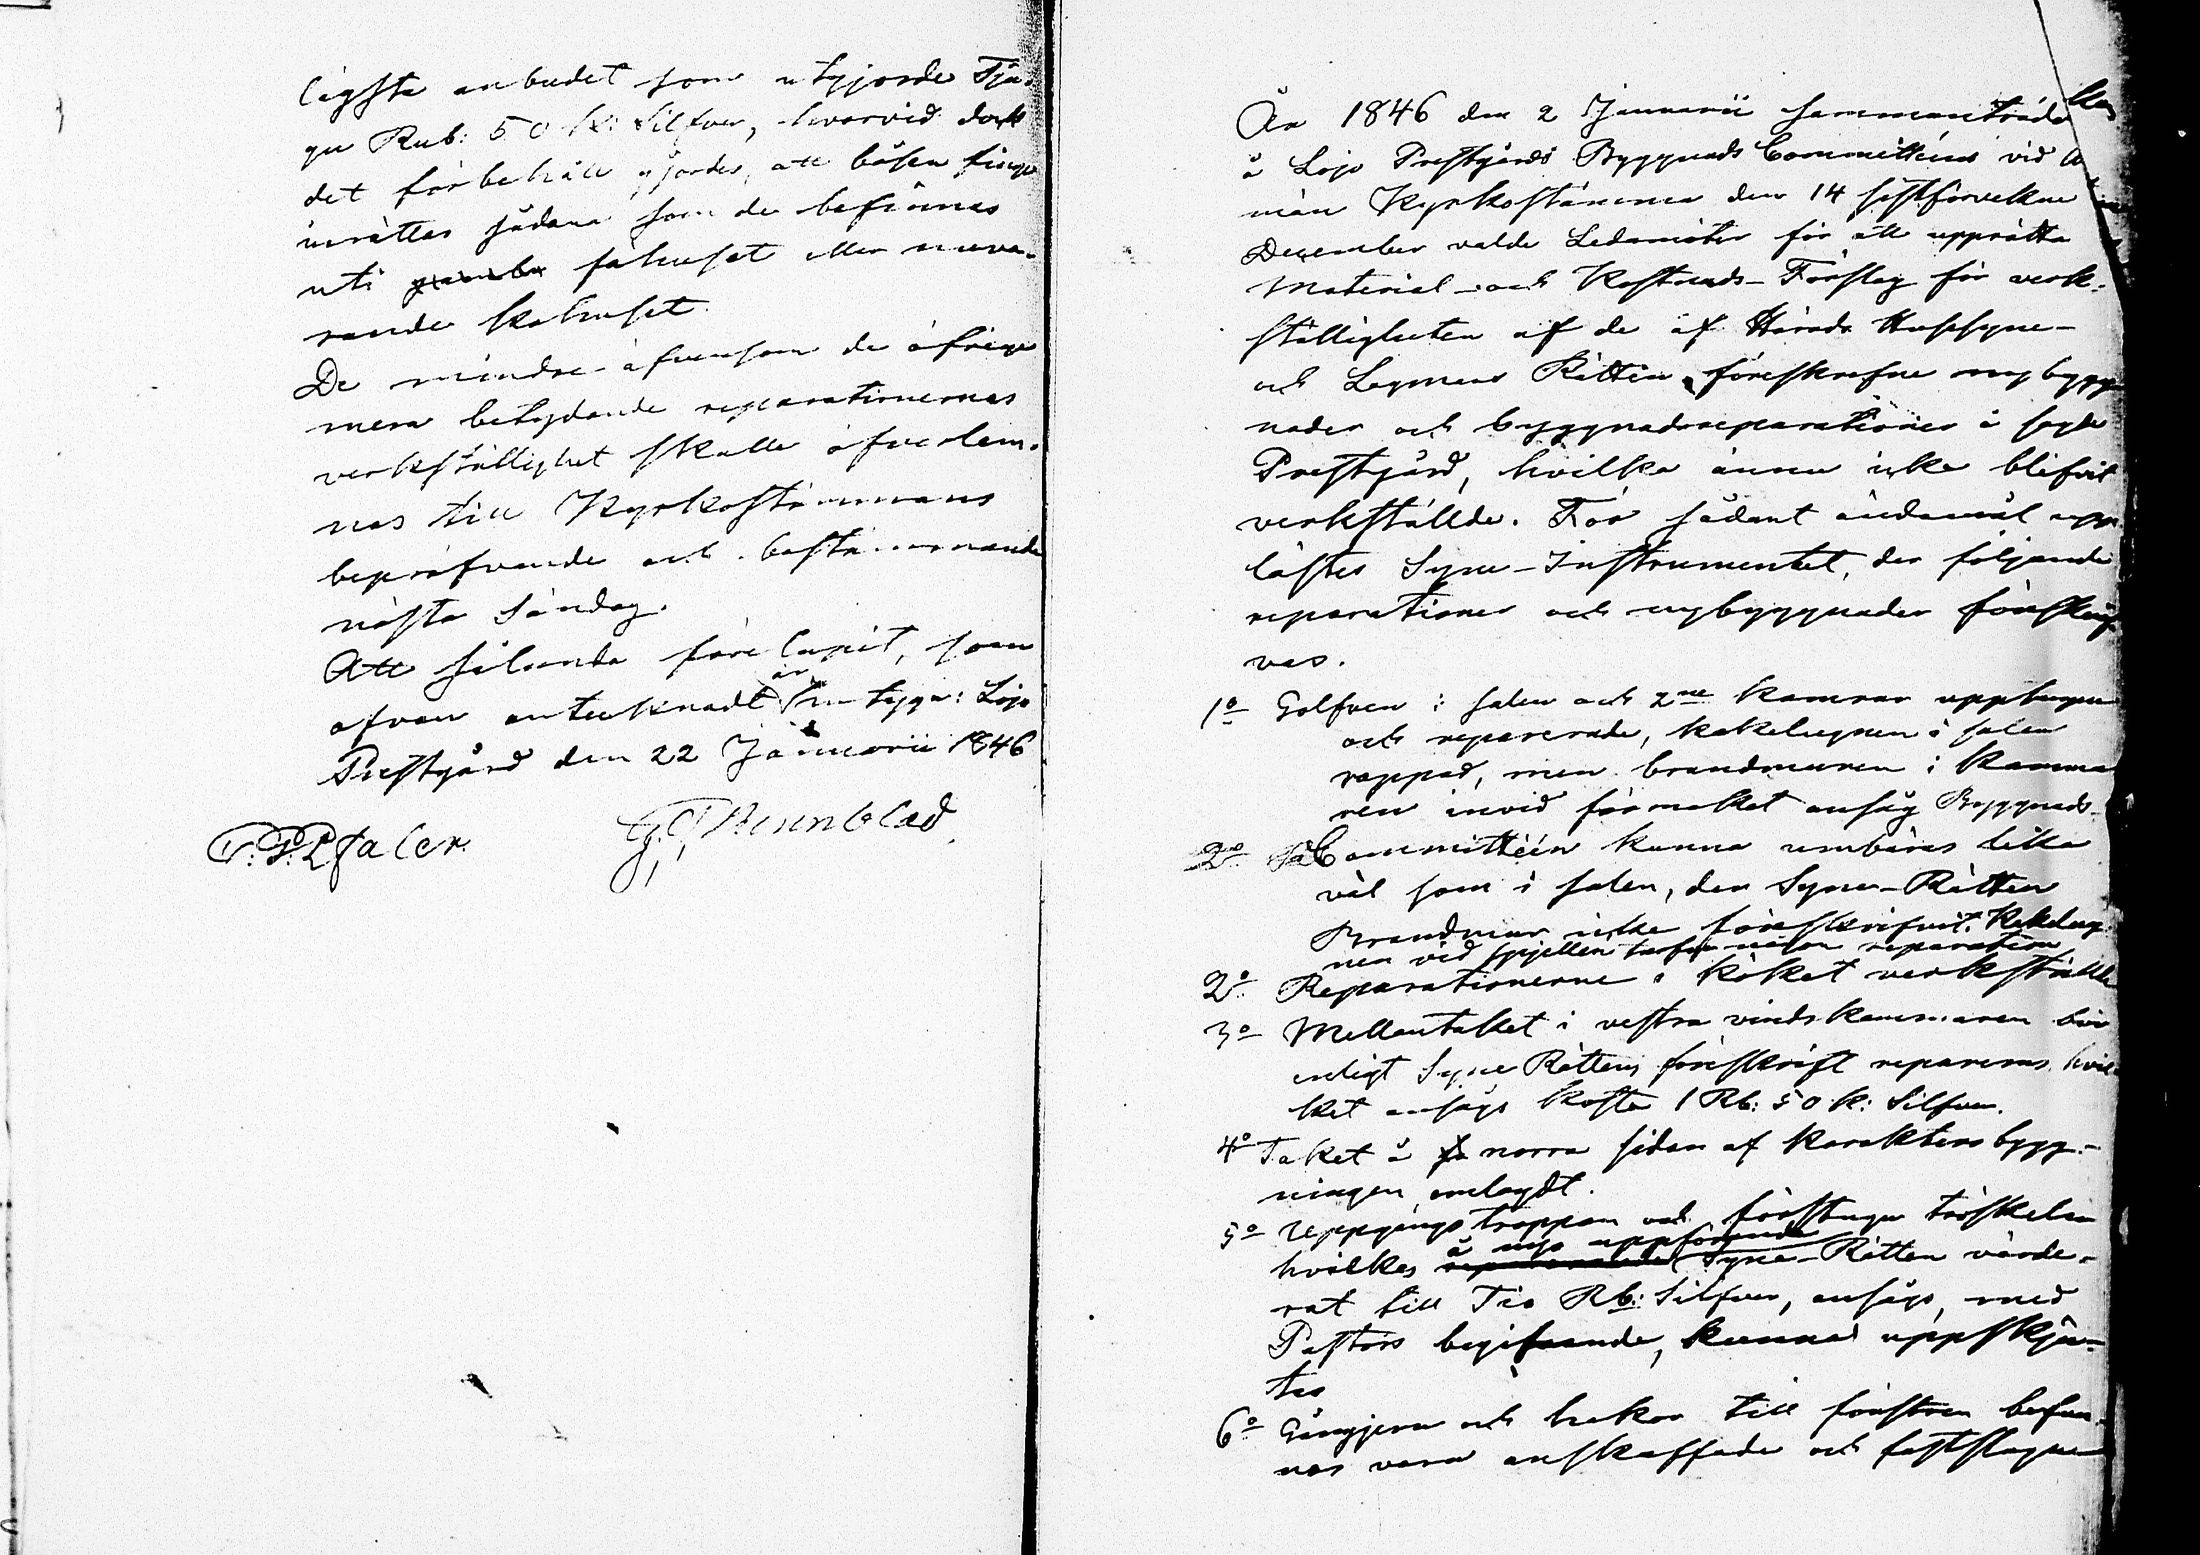 lägsta anbudet som utgjorde Tju-
gu Rub: 50 k: Silfver, hvarvid dock
det förbehåll gjordes, att båsen finge
inrättas sådana som de befinnas
uti gamla fähuset eller nuva-
rande kohuset.
De mindre äfvensom de öfriga
mera betydande reparationernas
verkställighet skulle öfverlem-
nas till Kyrkostämmans
bepröfvande och bestämmande
nästa Söndag.
Att sålunda förelupit, som
ofvan antecknadt är intyga: Lojo
Prestgård den 22 Januarii 1846
G. Wennblad
År 1846 den 2 Januarii sammanträdde
å Lojo Prestgårds Byggnads Committéens vid
män Kyrkostämma den 14 sistförvekne
December valde Ledamöter för att upprätta
Material- och Kostnads-Förslag för verk-
ställigheten af de af Härads Husesyne-
och Lagmans Rätten föreskrefne nybygg-
nader och byggnadsreparationer å sagde
Prestgård, hvilka ännu icke blifvit
verkställde. För sådant ändamål upp-
lästes Syne-Instrumentet, der följande
reparationer och nybyggnader föreskrif-
vas.
1o Golfven i salen och 2ne kamrar upptagne
och reparerade, kakelugnen i salen
rappad, men brandmuren i Kamma-
ren invid förmaket ansåg Byggnads-
2o Committéen kunna umbäras lika
väl som i salen, der Syne-Rätten
Brandmur icke föreskrifvit. Kakelug-
nen vid spjellen tarfvar någon reparation
2o Reparationerne i köket verkställde
3o Mellantaket i vestra vindskammaren bör
enligt Syne Rättens föreskrift repareras, hvil-
ket ansågs kosta 1 Rb: 50 k: Silfver.
4o Taket å norra sidan af Karaktersbygg-
ningen omlagdt.
5o Uppgångstrappan och förstugu tröskeln
å nyo uppförande
hvilkas Syne-Rätten värde-
rat till Tio Rb: Silfver, ansågs, med
Pastors begifvande, kunna uppskju-
tas
6o Gångjern och hakar till fönstren befun-
nos vara anskaffade och fastslagne